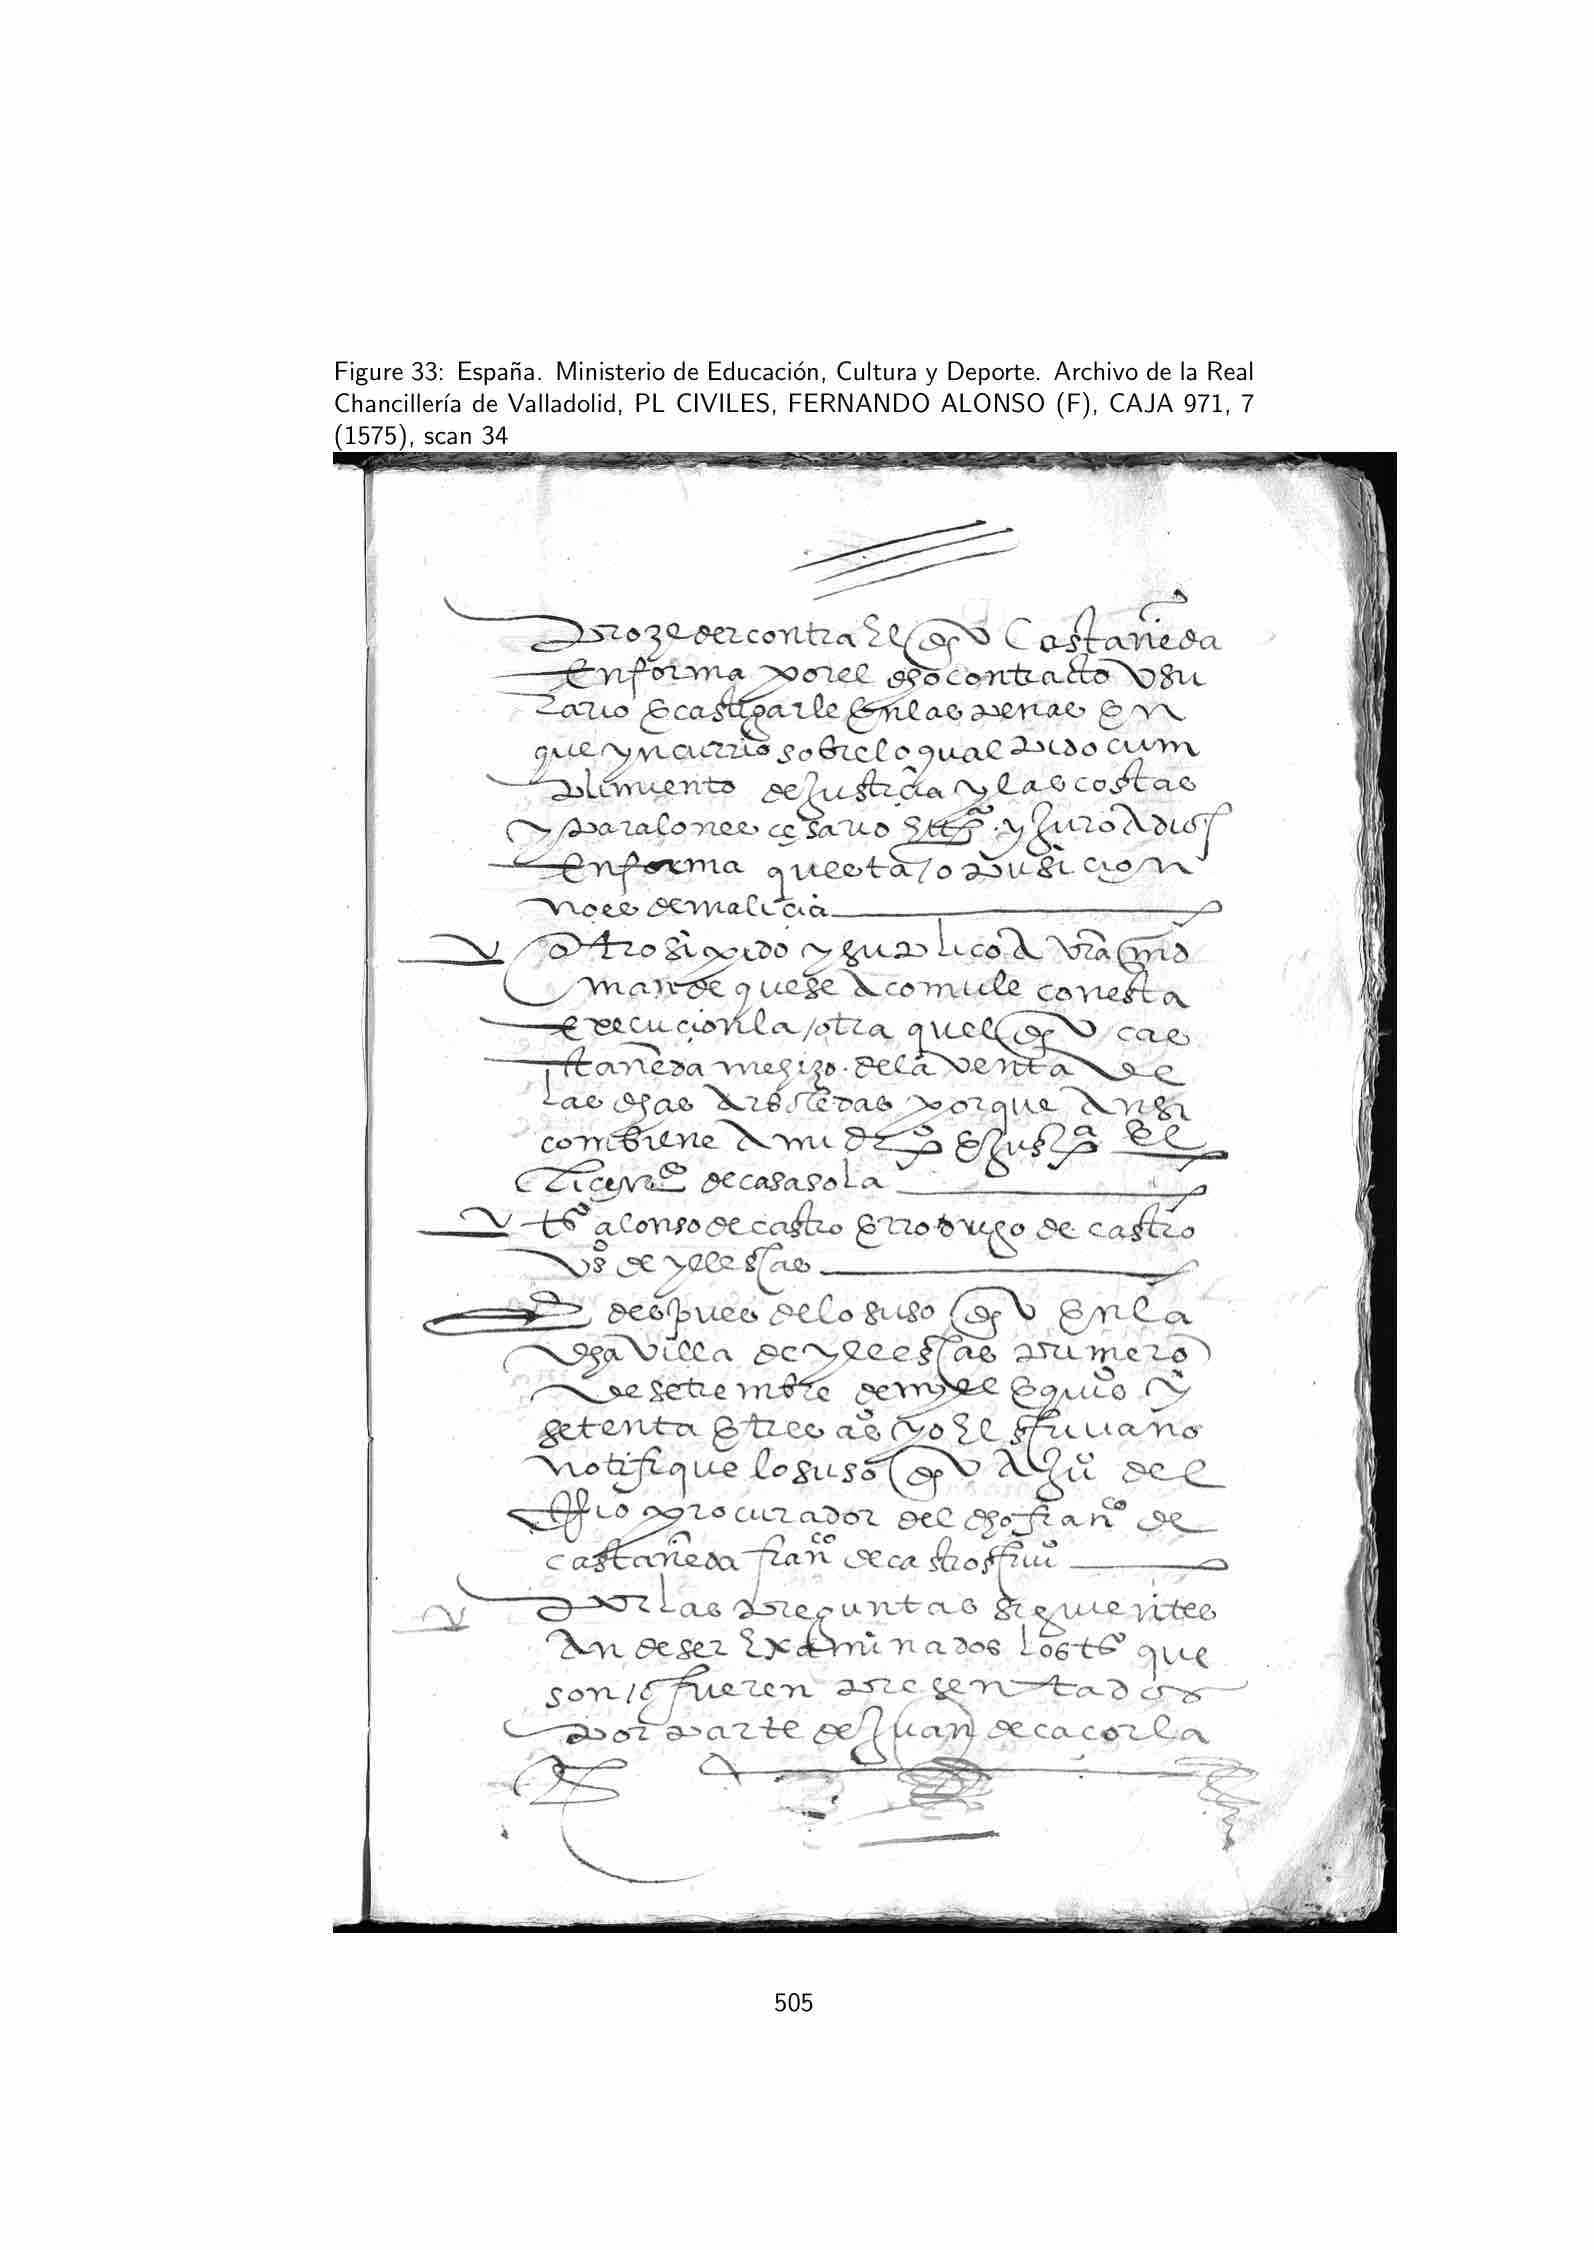 Figure 33: España. Ministerio de Educación, Cultura y Deporte. Archivo de la Real
Chancillería de Valladolid, PL CIVILES, FERNANDO ALONSO (F), CAJA 971, 7
(1575), scan 34
prozeder contra El dho Castañeda
En forma por el dho contrato vsu
rario E castigarle En las penas En
que yncurrio sobre lo qual pido cum
plimiento de Justicia y las costas
y para lo nesçesario y Juro a dios
En forma que esta posicion
no es de malicia
otrosi pido y suplico a vra md
mande que se acomule con esta
execucion la otra quel dho cas
tañeda me hizo de la venta de
las dhas porque ansi
combiene a mi dro E Justa El
licendo de casasola
ts alonso de castro E rrodrigo de castro
vs de yllescas
E despues de lo suso dho En la
dha villa de yllescas primero
de setiembre de myll E quis y
setenta E tres as yo El scrivano
notifique lo suso dho a Ju del
procurador del dho franco de
castañeda franco de castro scriu
por las preguntas siguientes
an de ser Examinados los ts que
son o fueren presentados
por parte de Juan de cacorla
505